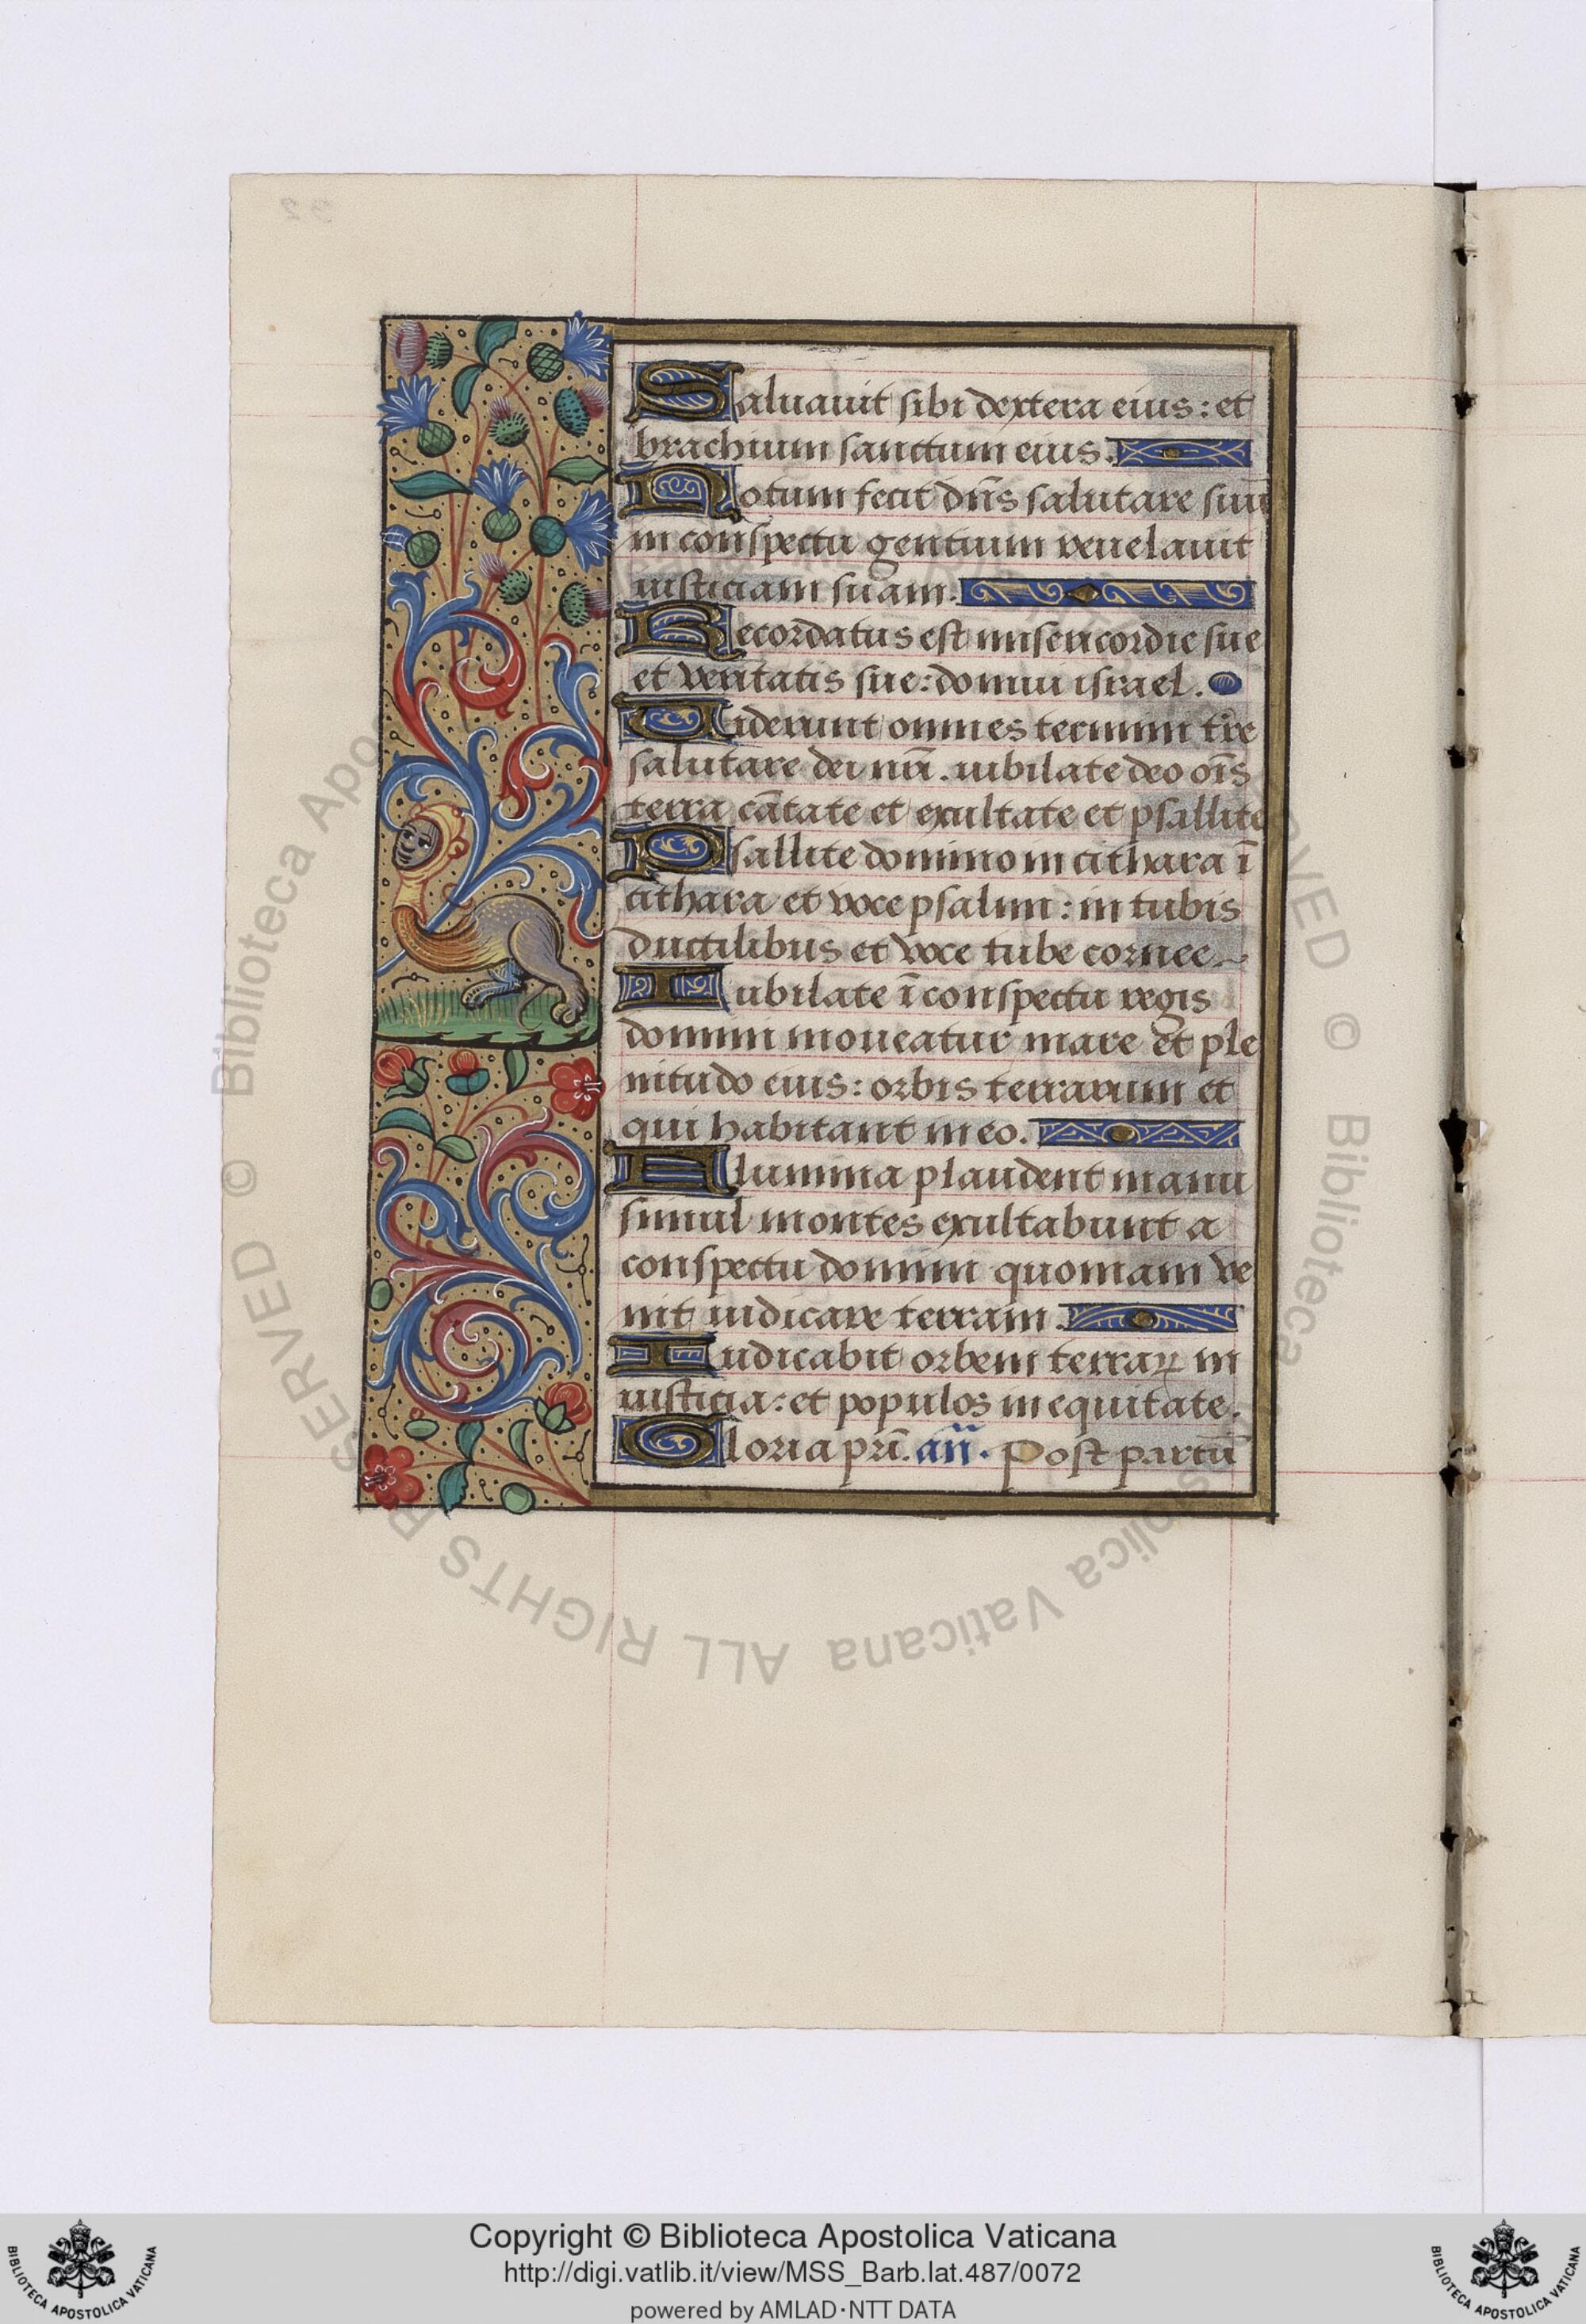 Saluauit sibi dextera eius: et
brachium sanctum eius.
Notum fecit dn̄s salutare suū
in conspectu gentium reuelauit
iusticiam suam.
Recordatus est misericordie sue
et veritatis sue: domui israel.
Viderunt omnes termini tr̄e
salutare dei nr̄i. iubilate deo oīs
terra cātate et exultate et psallite
Psallite domino in cithara ī
cithara et voce psalmi: in tubis
ductilibus et voce tube cornee
Iubilate ī conspectu regis
domini moueatur mare et ple
nitudo eius: orbis terrarum et
qui habitant in eo.
Flumina plaudent manu
simul montes exultabunt a
conspectu domini quoniam ve
nit iudicare terram.
Iudicabit orbem terraꝝ in
iusticia: et populos in equitate.
Gloria pr̄i. añ. Post partū
© Biblioteca Apostolica Vaticana ALL RIGHTS RESERVED © Biblioteca Apostolica Vaticana ALL RIGHTS RESERVED
Copyright © Biblioteca Apostolica Vaticana
http://digi.vatlib.it/view/MSS_Barb.lat.487/0072
powered by AMLAD·NTT DATA
BIBLIOTECA APOSTOLICA VATICANA
BIBLIOTECA APOSTOLICA VATICANA